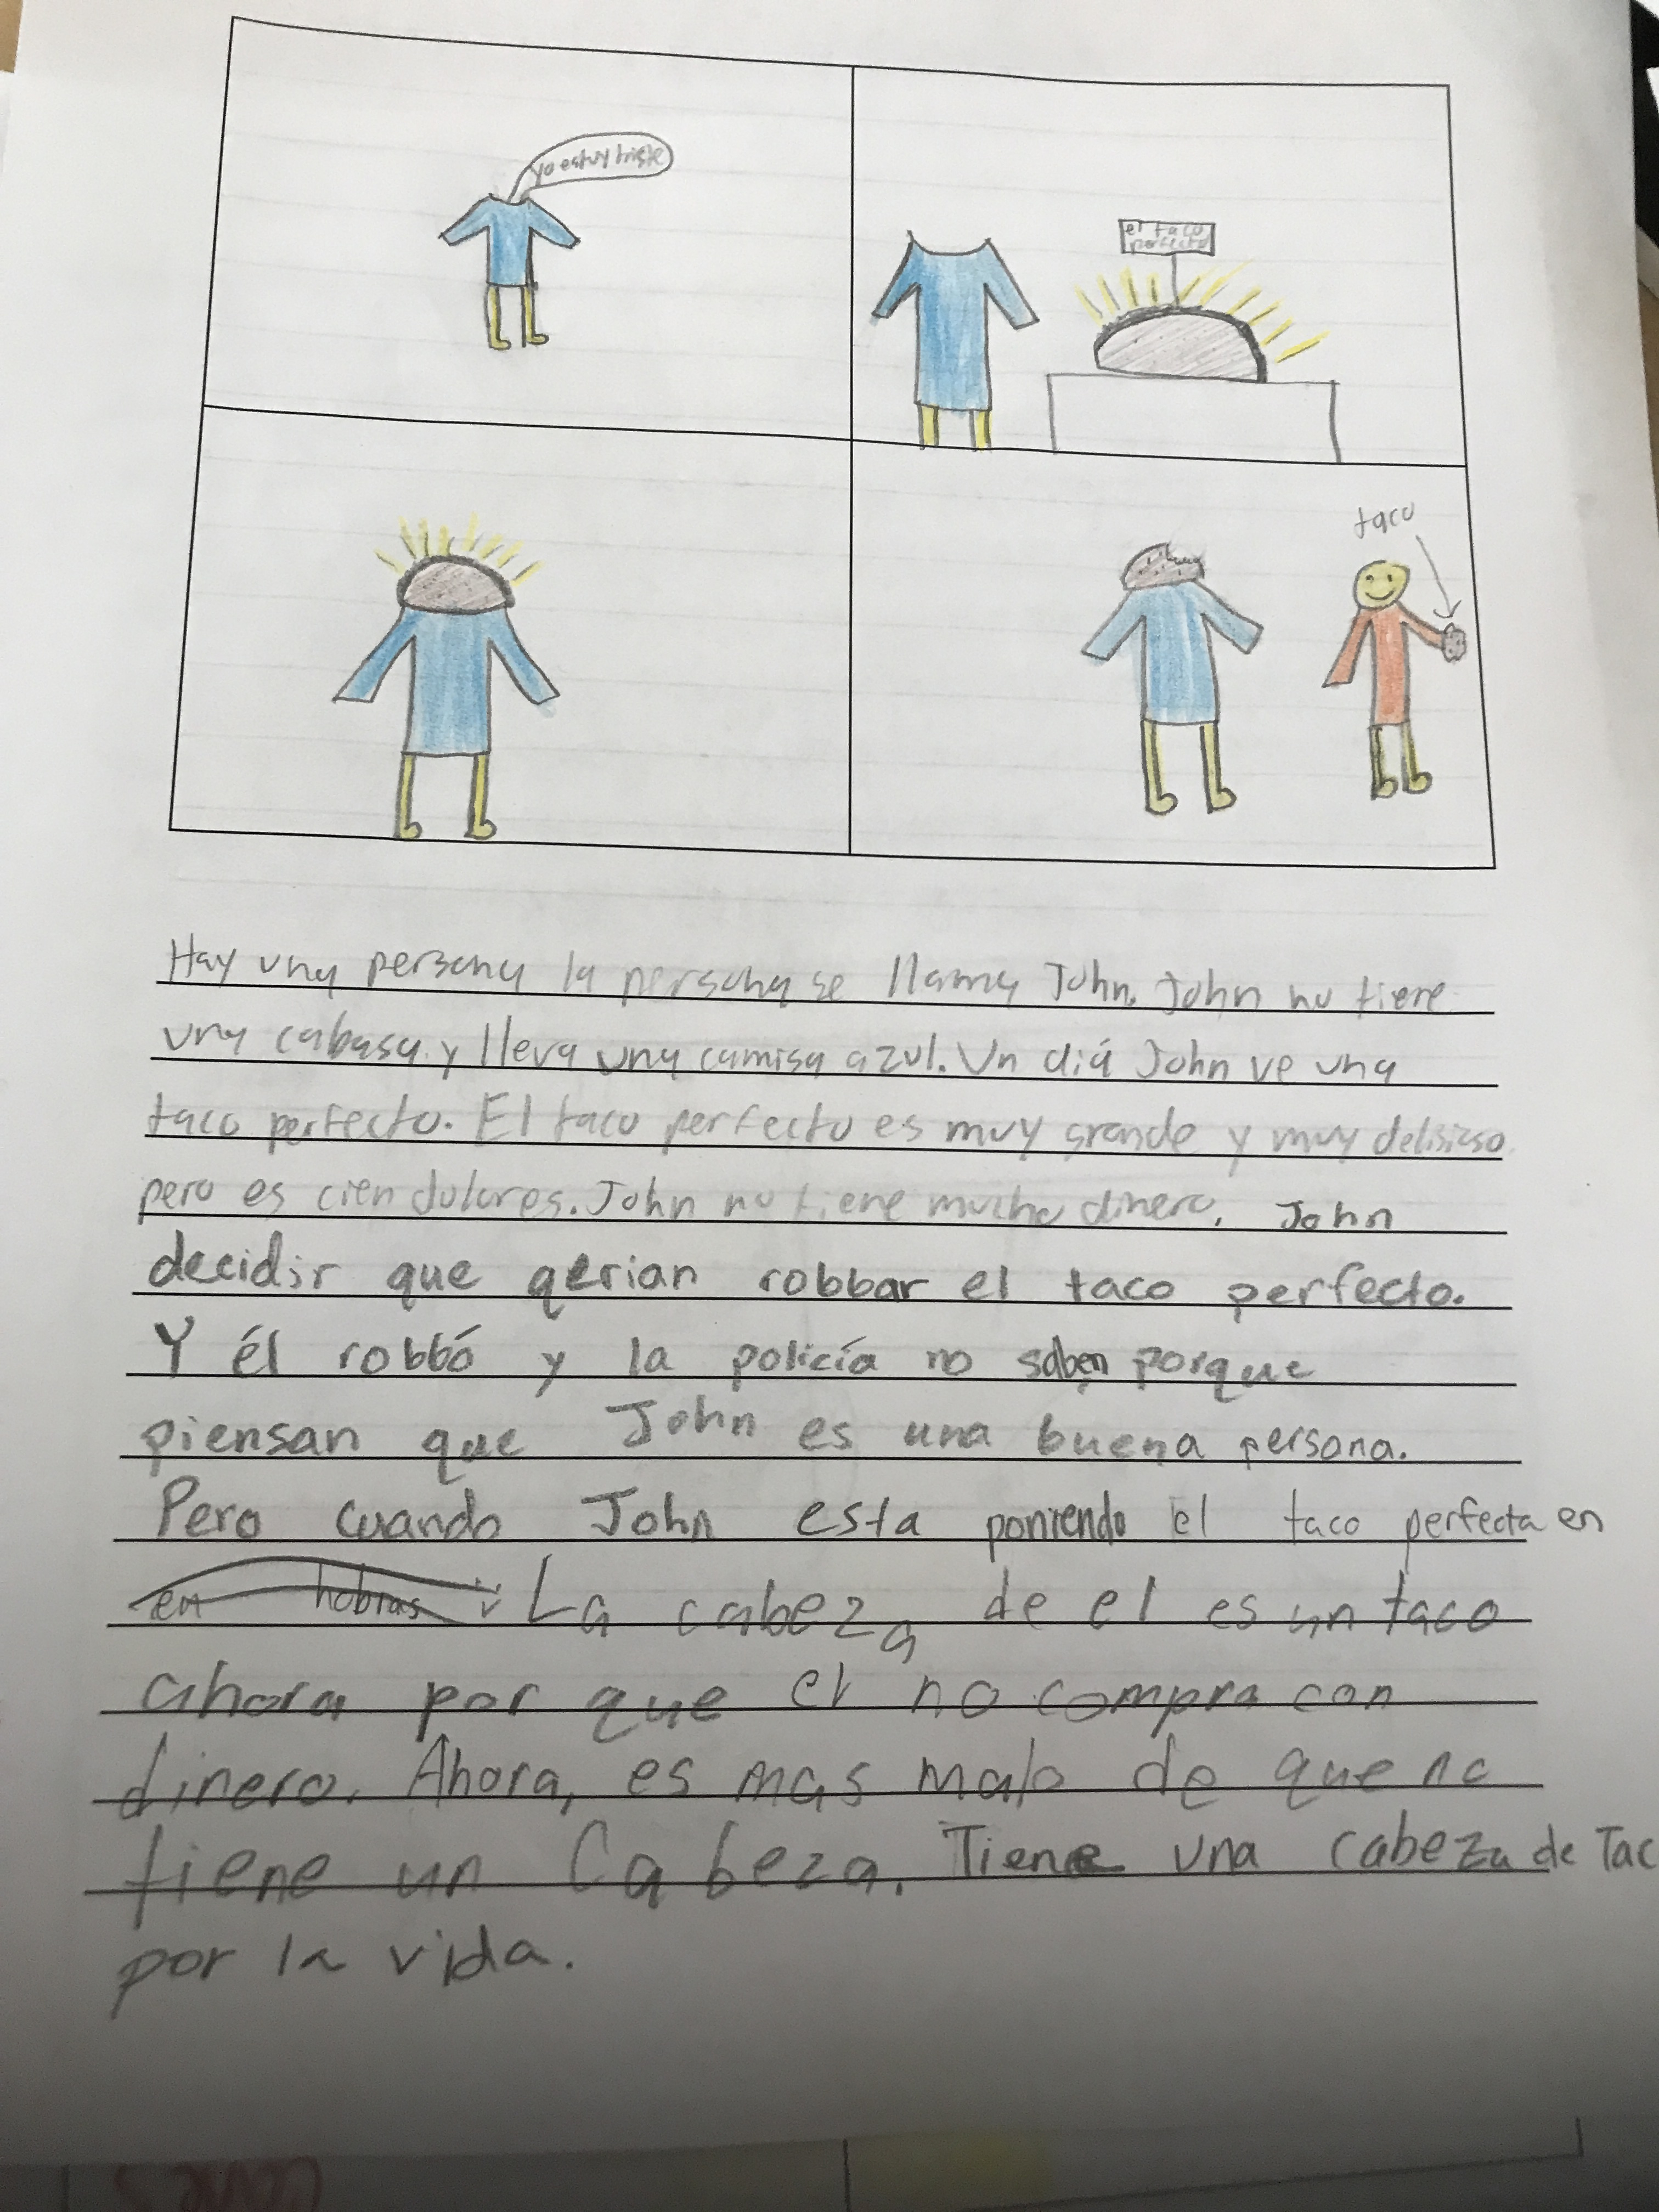 yo estoy triste
el taco
perfecto
taco
Hay una persona la persona se llama John. John no tiene
una cabasa y lleva una camisa azul. Un diá John ve una
taco perfecto. El taco perfecto es muy grande y muy delisioso
pero es cien dolores. John no tiene mucho dinero. John
decidir que qerian robbar el taco perfecto.
Y él robbó y la policía no saben porque
piensan que John es una buena persona.
Pero cuando John esta poniendo el taco perfecta en
en hobras La cabeza de el es un taco
ahora por que el no compra con
dinero. Ahora, es mas malo de que no
tiene un Cabeza. Tiene una cabeza de Tac
por la vida.